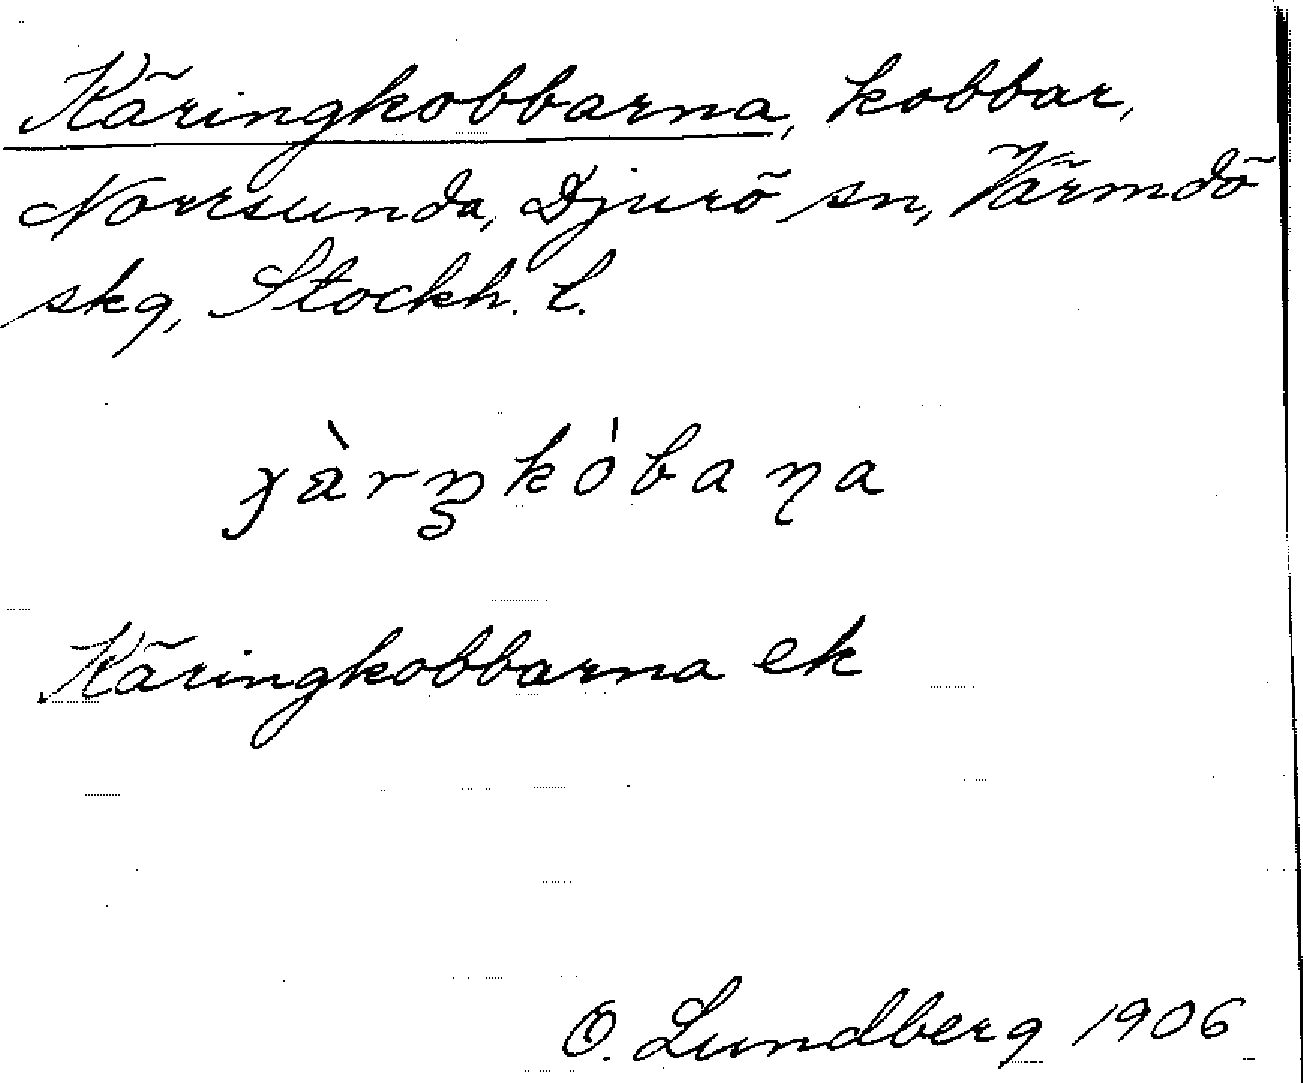 Käringkobbarna, kobbar,
Norrsunda, Djurö sn, Värmdö
skg, Stockh. l.
Käringkobbarna ek
O. Lundberg 1906